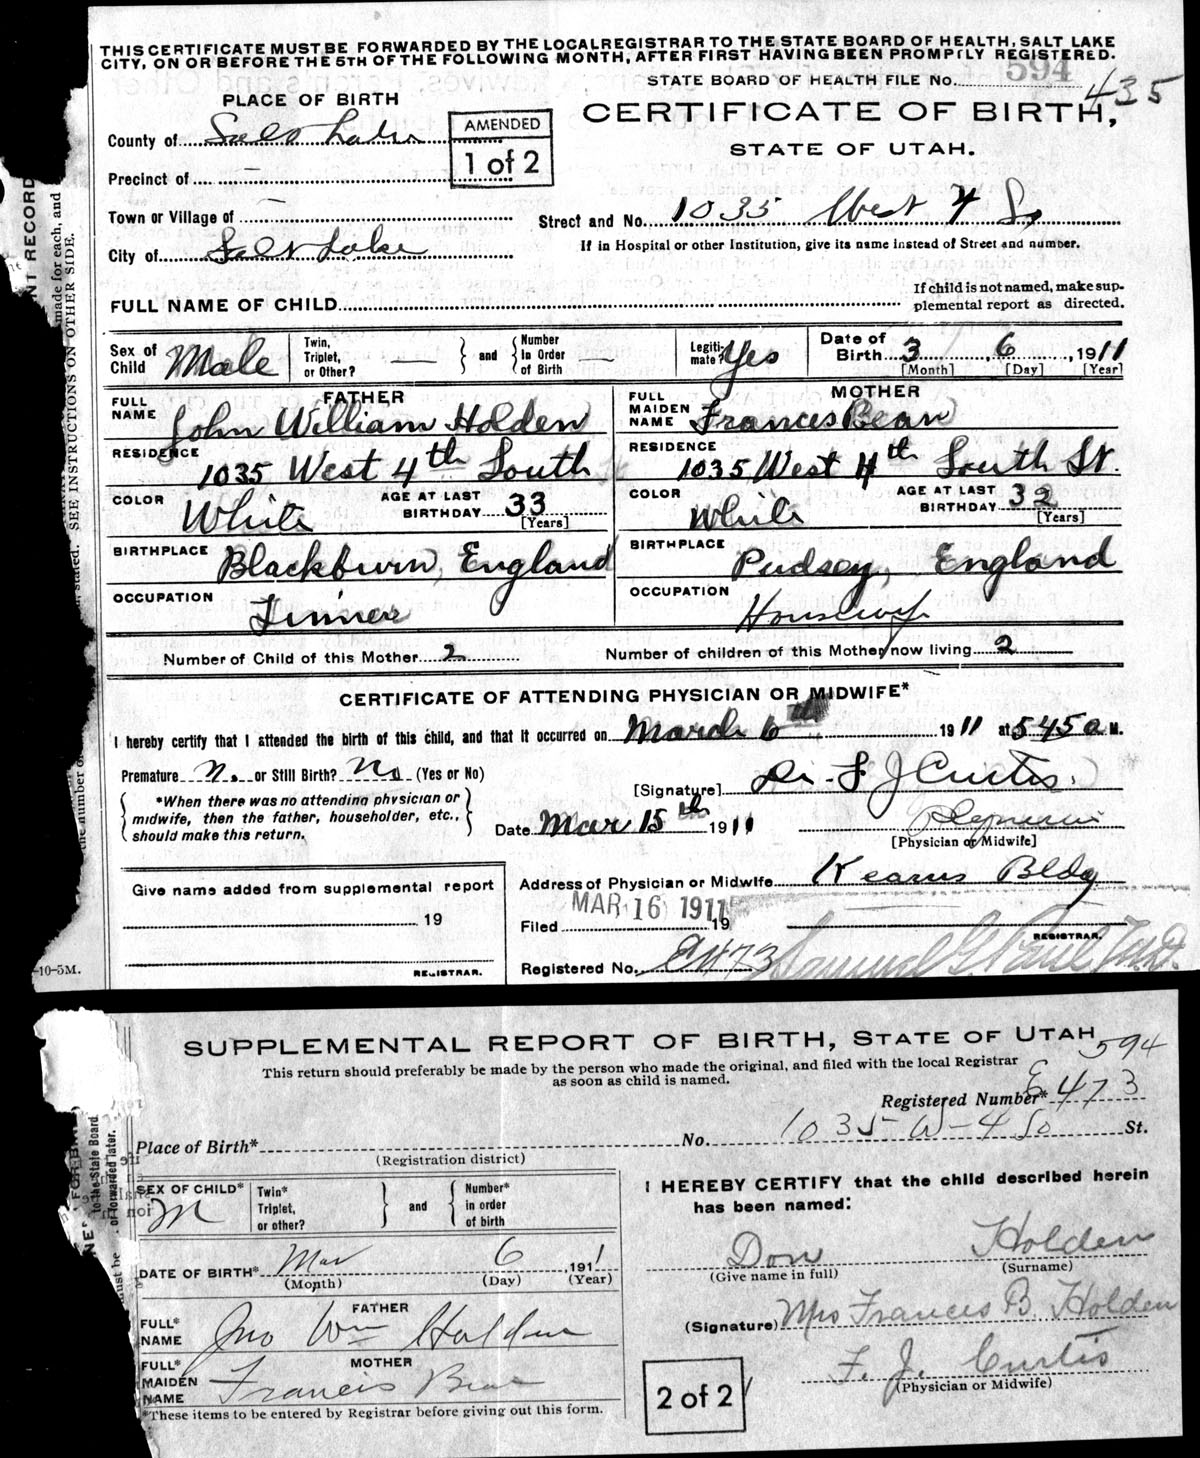 THIS CERTIFICATE MUST BE FORWARDED BY THE LOCAL REGISTRAR TO THE STATE BOARD OF HEALTH, SALT LAKE
CITY, ON OR BEFORE THE 5TH OF THE FOLLOWING MONTH, AFTER FIRST HAVING BEEN PROMPTLY REGISTERED.
STATE BOARD OF HEALTH FILE No. 594 435
PLACE OF BIRTH
CERTIFICATE OF BIRTH,
STATE OF UTAH.
County of Salt Lake
AMENDED
1 of 2
Precinct of —
Town or Village of —
Street and No. 1035 West 4 So
City of Salt Lake
If in Hospital or other Institution, give its name instead of Street and number.
FULL NAME OF CHILD
If child is not named, make sup-
plemental report as directed.
Sex of Child Male
Twin, Triplet, or Other? —
and Number In Order of Birth —
Legiti-mate? Yes
Date of Birth 3, 6, 1911
[Month] [Day] [Year]
FATHER
FULL NAME John William Holden
MOTHER
FULL MAIDEN NAME Frances Bean
RESIDENCE 1035 West 4th South
RESIDENCE 1035 West 4th South St.
COLOR White AGE AT LAST BIRTHDAY 33 [Years]
COLOR White AGE AT LAST BIRTHDAY 32 [Years]
BIRTHPLACE Blackburn, England
BIRTHPLACE Pudsey, England
OCCUPATION Tinner
OCCUPATION Housewife
Number of Child of this Mother 2
Number of children of this Mother now living 2
CERTIFICATE OF ATTENDING PHYSICIAN OR MIDWIFE*
I hereby certify that I attended the birth of this child, and that it occurred on March 6th 1911 at 545 a M.
Premature No or Still Birth? No (Yes or No)
[Signature] Dr. F J Curtis.
*When there was no attending physician or
midwife, then the father, householder, etc.,
should make this return.
Date Mar 15th 1911
Physician
[Physician or Midwife]
Give name added from supplemental report
19
REGISTRAR.
Address of Physician or Midwife Kearns Bldg
Filed MAR 16 1911 19
REGISTRAR.
Registered No. E473
-10-5M.
NT RECORD
made for each, and
stated. SEE INSTRUCTIONS ON OTHER SIDE.
the number o
SUPPLEMENTAL REPORT OF BIRTH, STATE OF UTAH 594
This return should preferably be made by the person who made the original, and filed with the local Registrar
as soon as child is named.
Registered Number* E473
Place of Birth* No. 1035-W-4 So St.
(Registration district)
SEX OF CHILD* M
Twin* Triplet, or other?
and Number* in order of birth
I HEREBY CERTIFY that the child described herein
has been named:
Don Holden
(Give name in full) (Surname)
DATE OF BIRTH* Mar 6, 1911
(Month) (Day) (Year)
(Signature) Mrs Frances B. Holden
FATHER
FULL* NAME Jno Wm Holden
MOTHER
FULL* MAIDEN NAME Francis Bean
F. J. Curtis
(Physician or Midwife)
2 of 2
*These items to be entered by Registrar before giving out this form.
to the State Board
or forwarded later.
must be